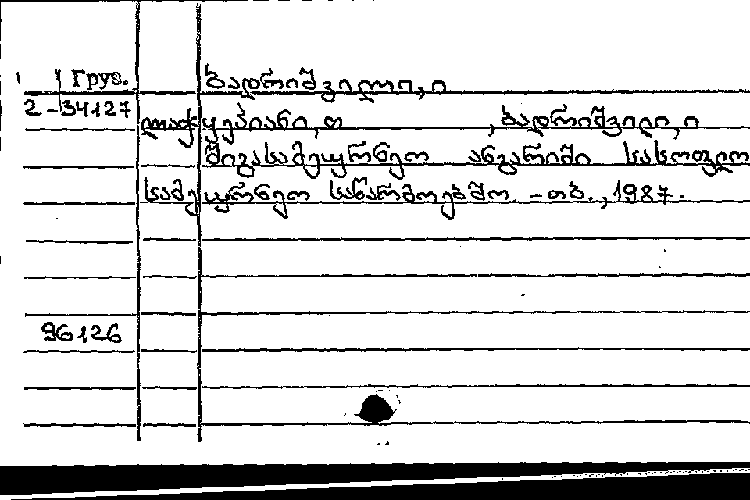 Груз. ბადრიშვილი, ი
2-34127
ლაქყეპიანი, თ , ბადრიშვილი, ი
შიგასამეურნეო ანგარიში სასოფლო
სამეურნეო საწარმოებში - თბ., 1987.
96126